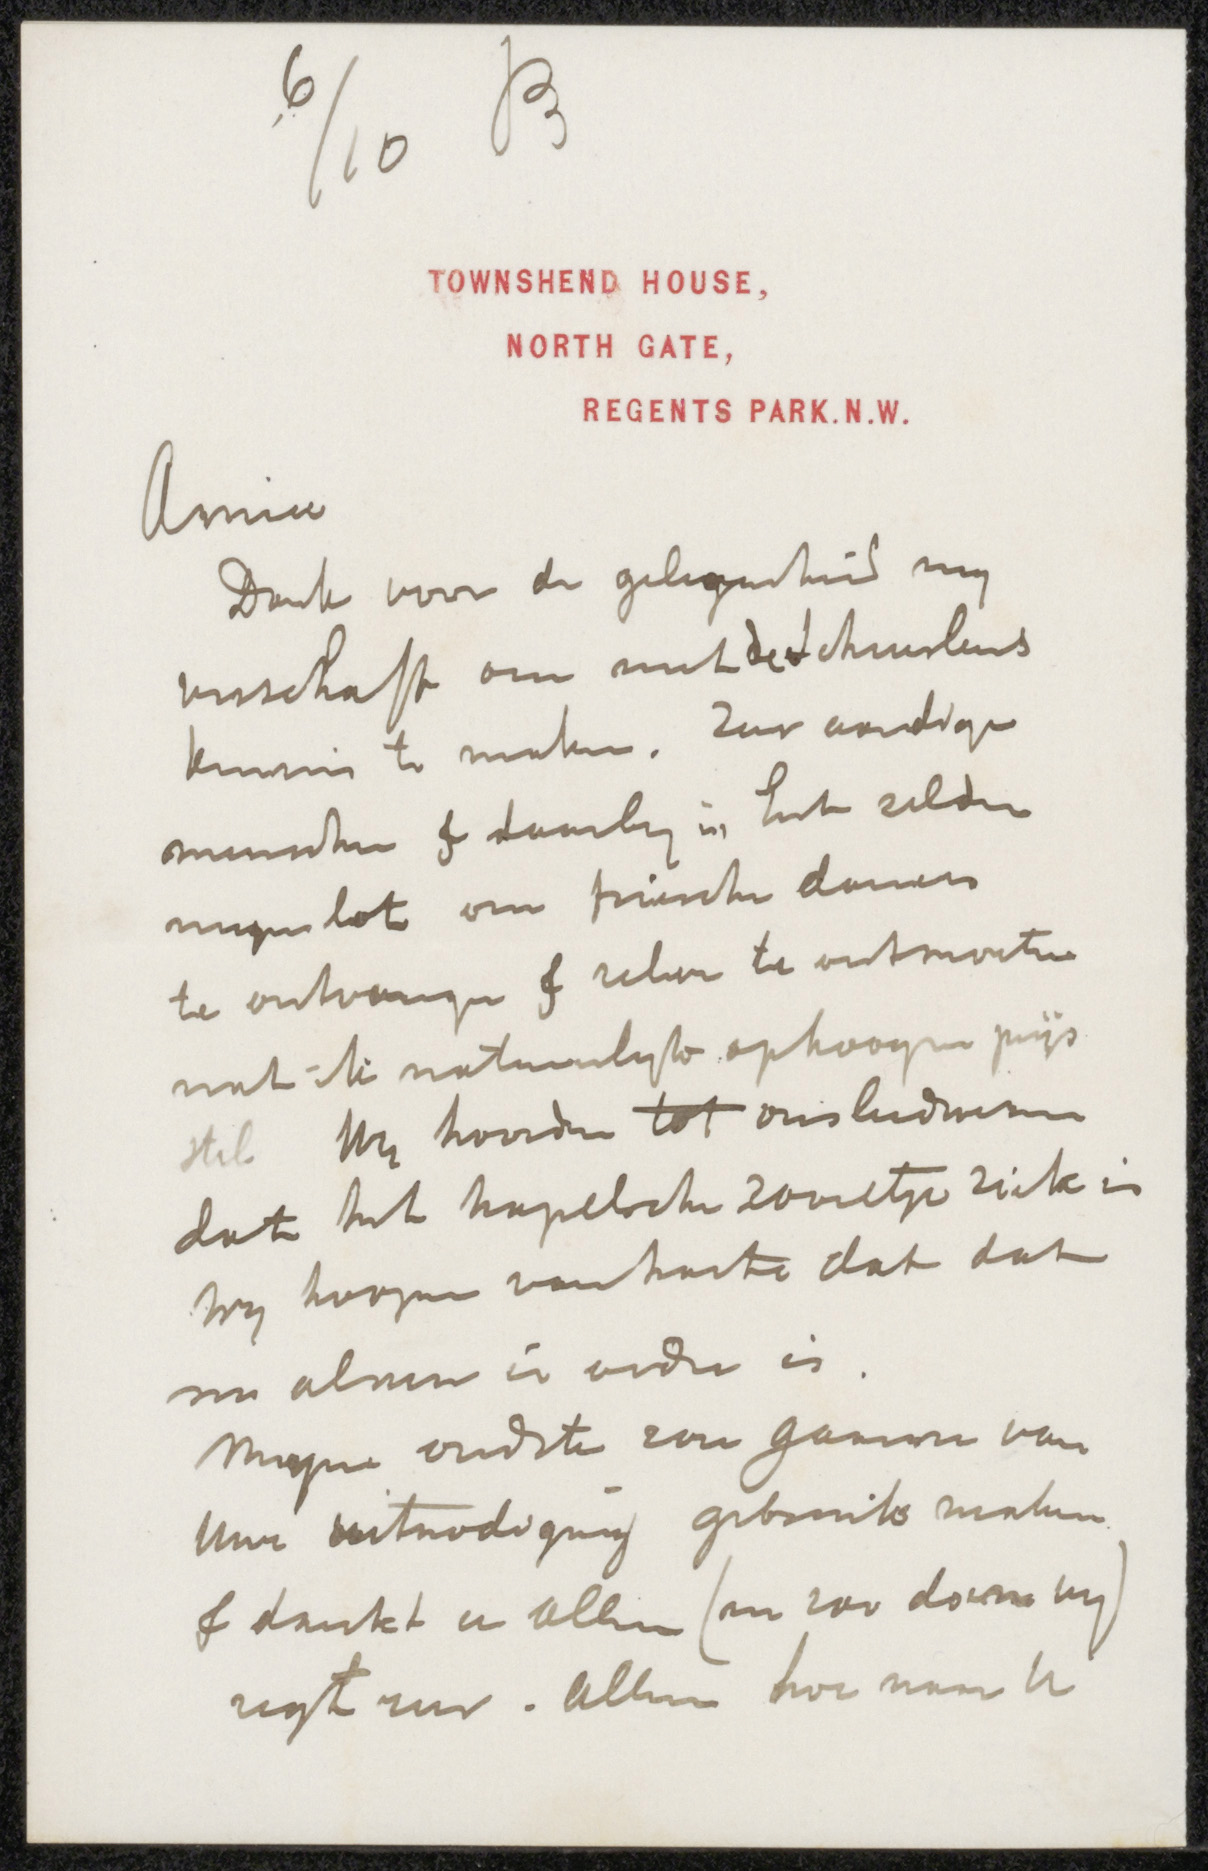 6/10 83
TOWNSHEND HOUSE,
NORTH GATE,
REGENTS PARK. N.W.
Amice
Dank voor de gelegenheid my
verschaft om met de
kennis te maken. Zeer aardige
menschen & daarby is het zelden
myn lot om friesche dames
te ontvangen & zelve te ontmoeten
wat ik natuurlyk op hoogen prijs
stel Wy hoorden tot ons leedwezen
dat het kapelsche zoontje ziek is
Wy hoopen van harte dat dat
nu alweer in orde is.
Myne oudste zou gaarne van
Uwe uitnodiging gebruik maken
& dankt u allen (en zoo doen wy)
regt zeer. Allen hoe naar U